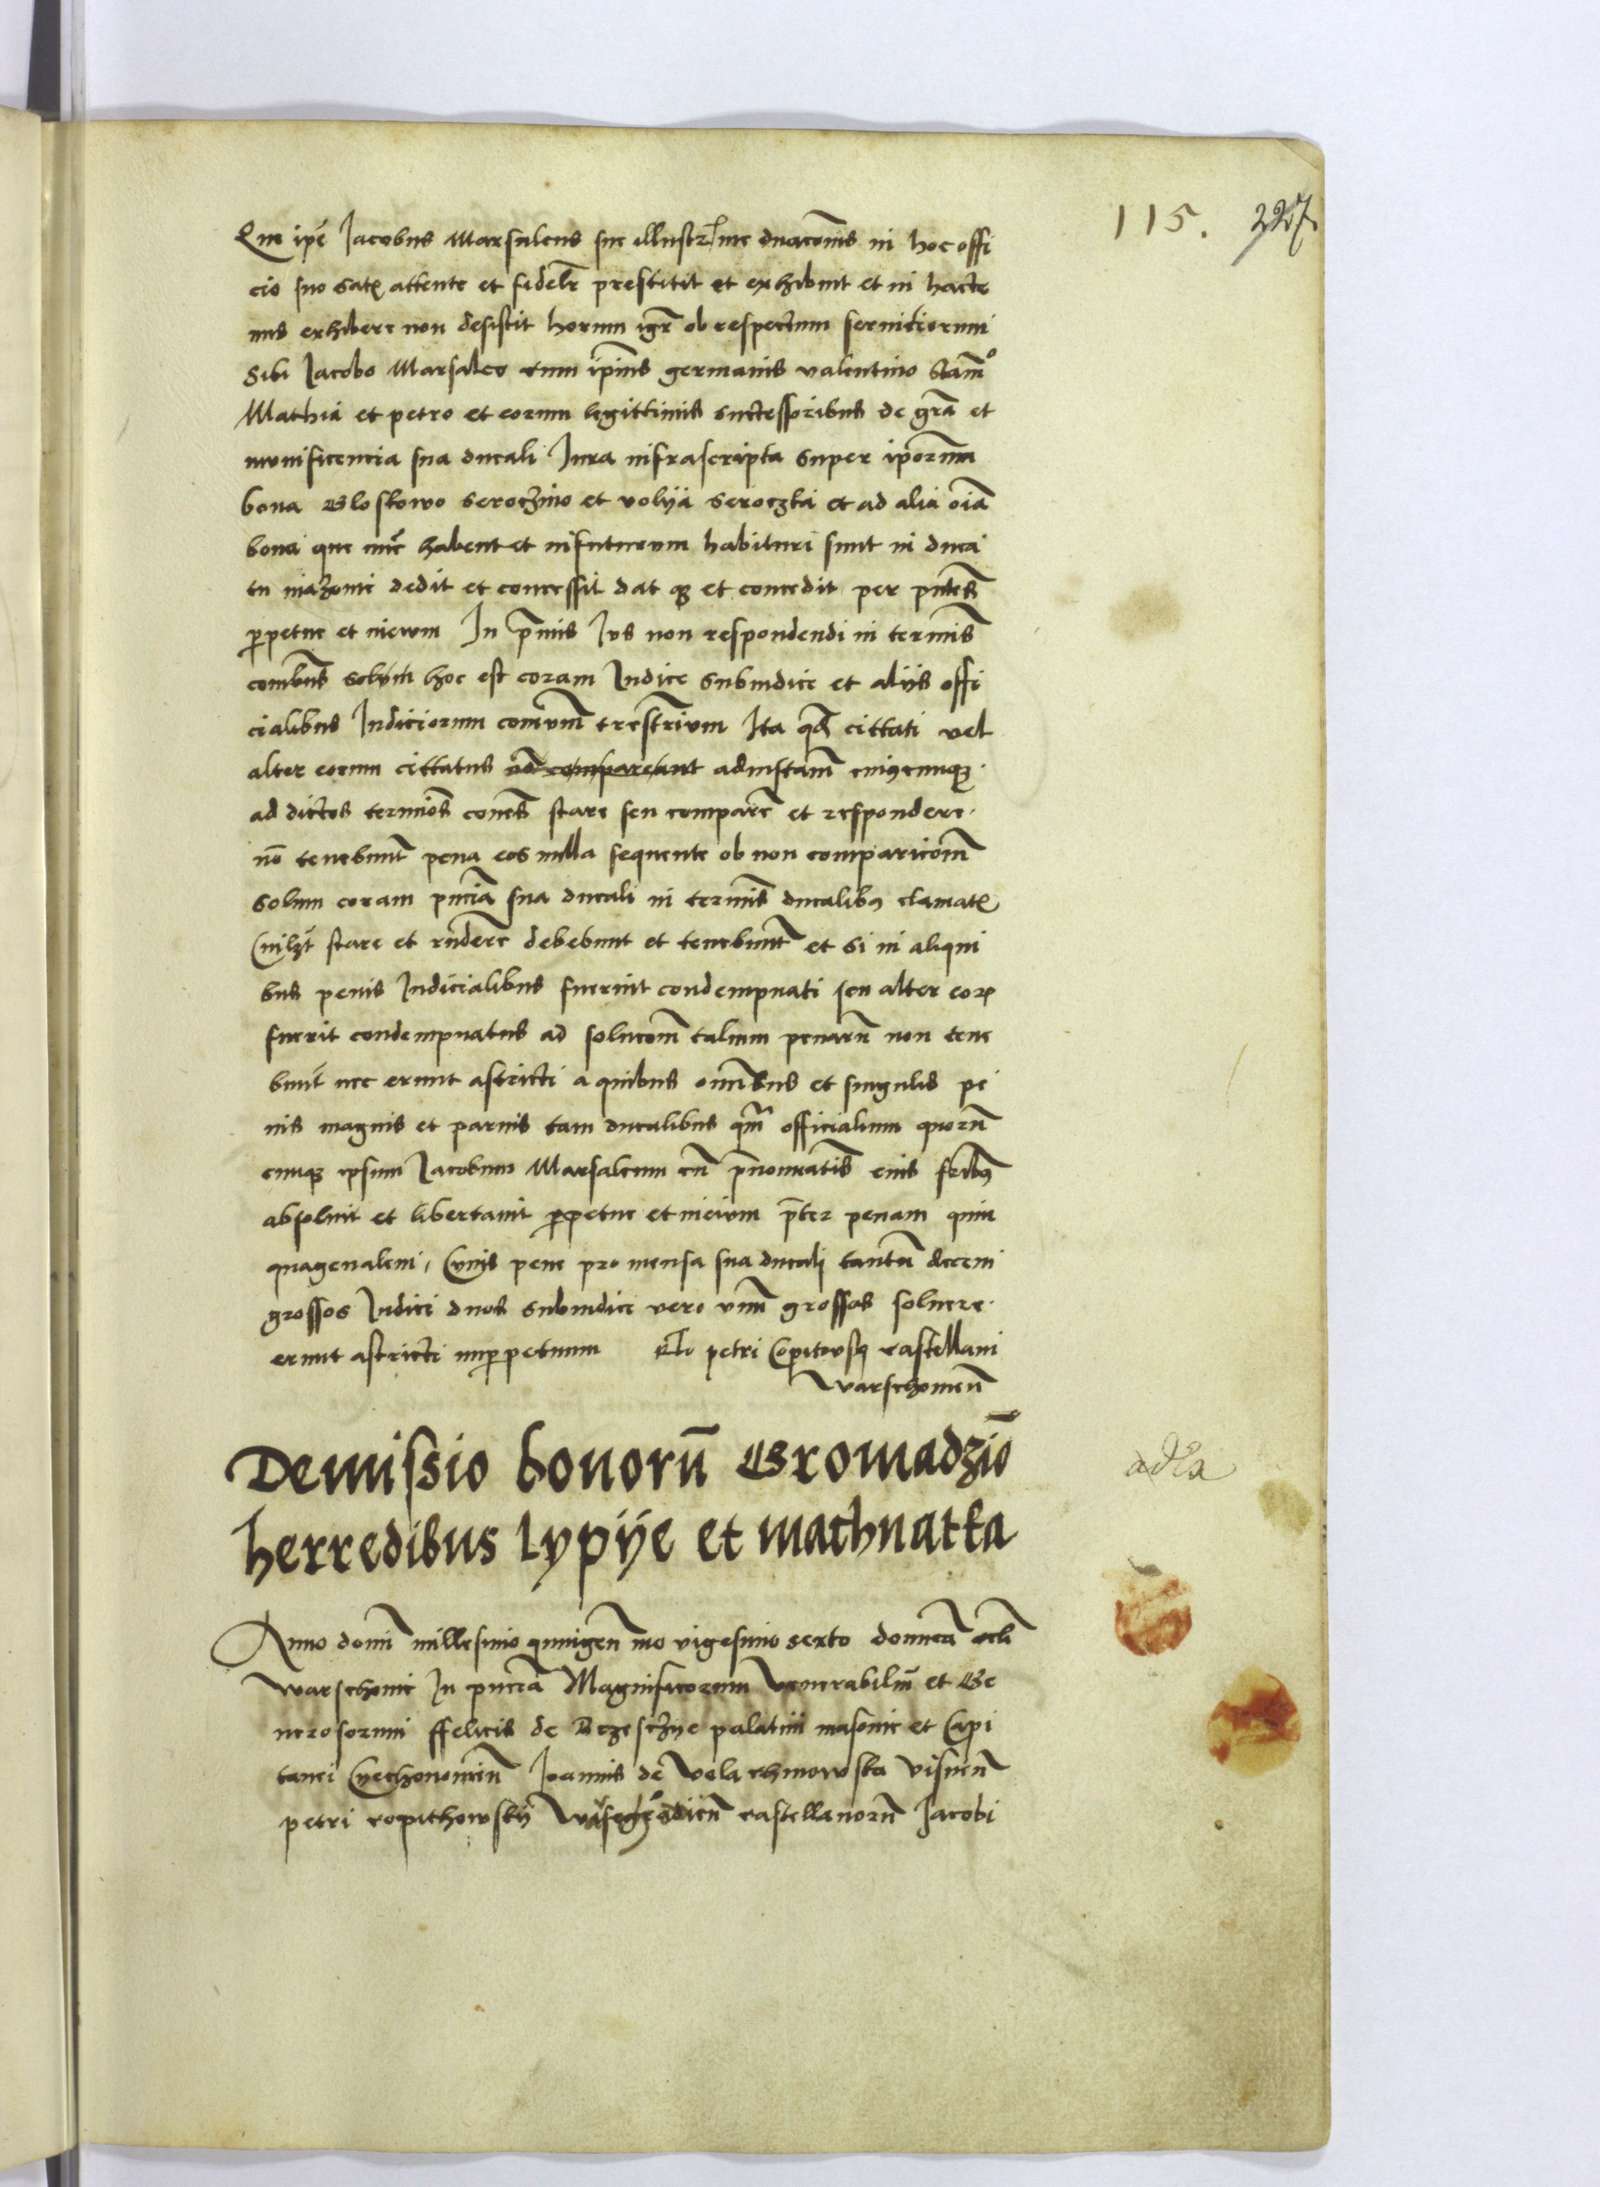 115. 227
Que ipē Jacobus Marsalcus sue illustrme dnacōnis in hoc offi
cio suo satꝫ attente et fidelr̄ prestitit et exhibuit et in hacte
nus exhibere non desistit horum igr̄ ob respectum seruiciorum
Sibi Jacobo Marsalco cum ip̄ius germanis valentino Stamᵒ
Mathia et petro et eorum legittimis successoribus de grā et
munificencia sua ducali Jura infrascripta super ip̄orum
bona Gloskowo seroczino et volya seroczka et ad alia oīa
bona que nūc habent et infuturum habituri sunt in duca
tu mazouie dedit et concessit dat qꝫ et concedit per pn̄tes
ꝑpetue et in euum In p̄mis Ius non respondendi in terminis
com̄bus solum hoc est coram Judice subiudice et alijs offi
cialibus Judiciorum com̄um tr̄estrium Ita qd̄ cittati vel
alter eorum cittatus ad compareant ad instam̄ cuiuscunqꝫ
ad dictos terminos com̄es stare seu compare et respondere
nō tenebunt̄ pena eos nulla sequente ob non comparicōm̄
solum coram pn̄cia sua ducali in terminis ducalibꝰ clamatꝫ
Ciuilr̄ stare et rn̄dere debebunt et tenebunt̄ et si in aliqui
bus penis Judicialibus fuerint condempnati seu alter eorꝫ
fuerit condempnatus ad solucōm̄ talium penarū non tene
bunt̄ nec erunt astricti a quibus omībus et singulis pe
nis magnis et paruis tam ducalibus qm̄ officialium quorū
cunqꝫ ipsum Jacobum Marsalcum cū p̄nominatis eius fr̄ibꝰ
absoluit et libertauit ꝑpetue et in euum p̄ter penam quin
quagenalem, Cuius pene pro mensa sua ducali tantū decem
grossos Judici duos subiudici vero vnū grossos soluere
erunt astricti imꝑpetuum Rlo petri Copitowsky castellani
warschouien̄
Demissio bonorū Gromadzīo
herredibus lypÿe et machnatka
Anno domī millesimo quingen̄mo vigesimo sexto donn̄ca
warschouie In pn̄cia Magnificorum Venerabiliū et Ge
nerosorum ffelicis de Brzesczye palatini masouie et Capi
tanei Cyechonouien̄ Joannis de Vola chinowska Visnen̄
petri copithowskÿ castellanorū Jacobi